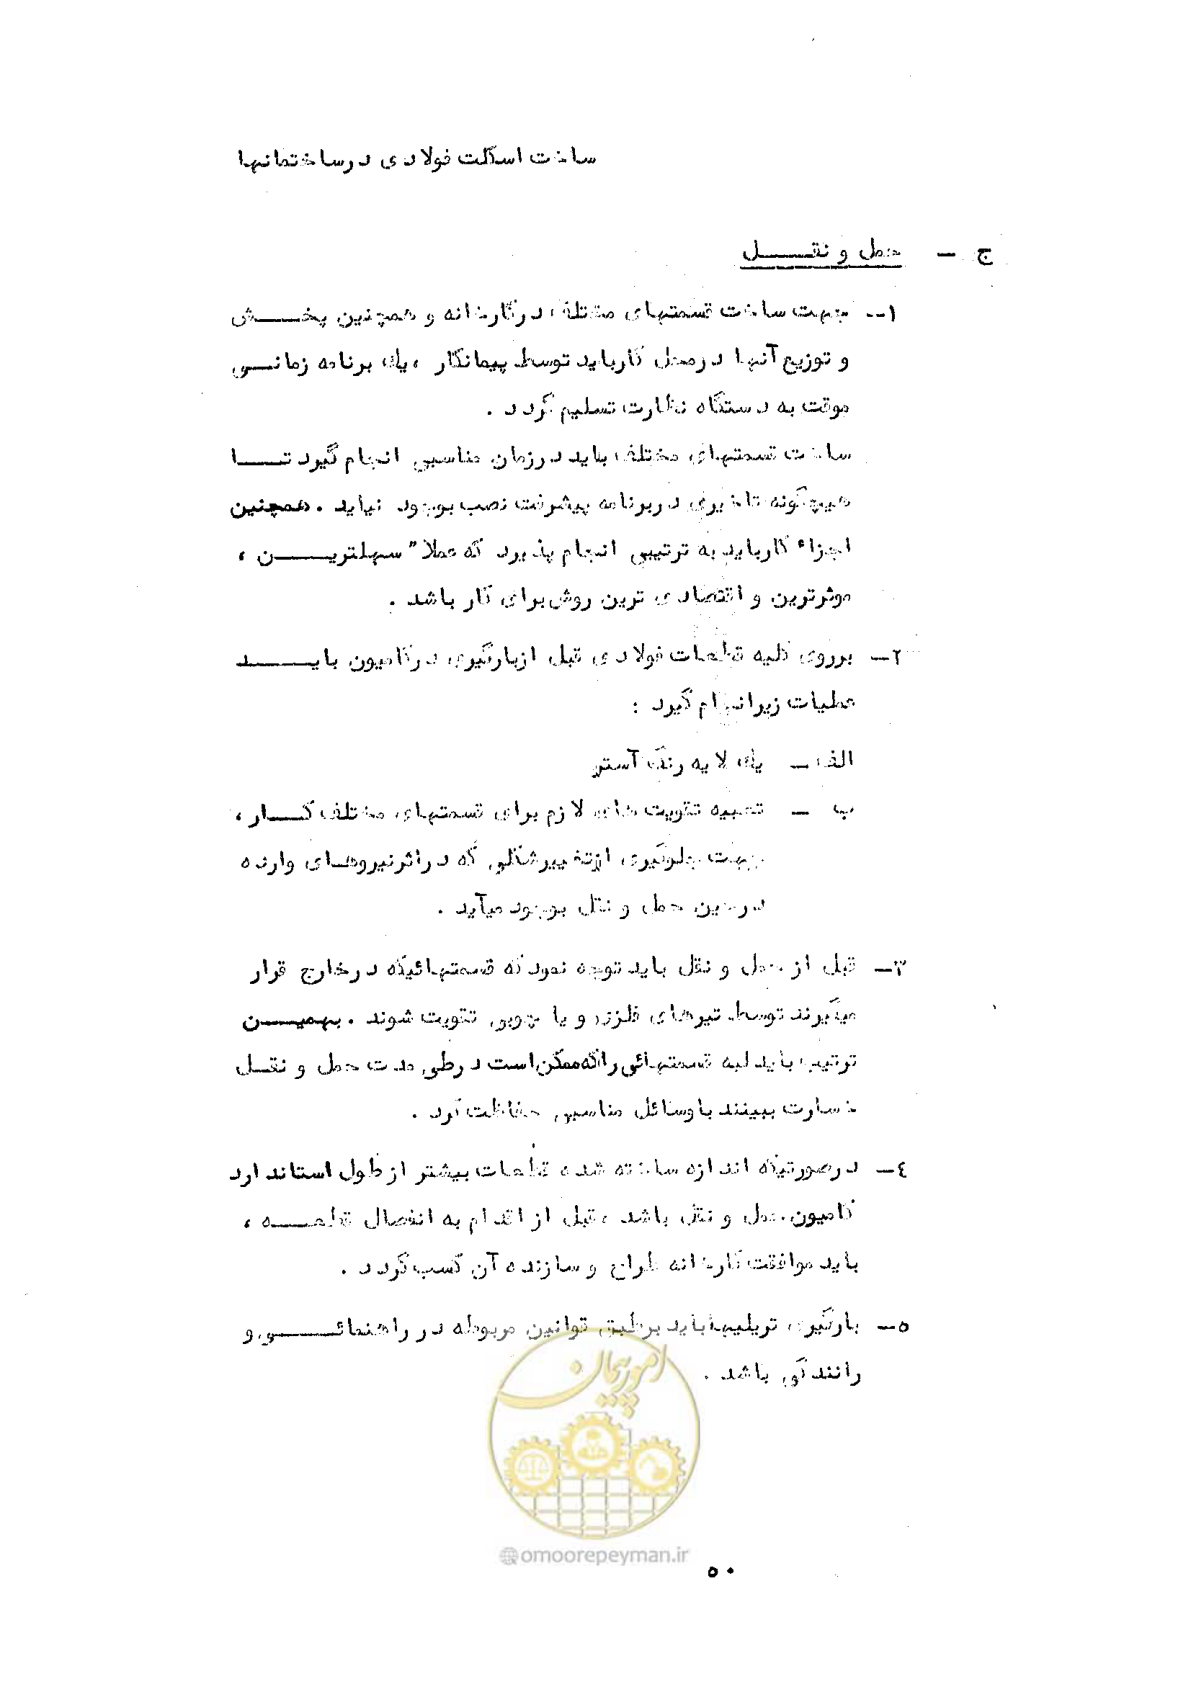 ساخت اسکلت فولادی درساختمانها
ج - حمل و نقـــــل
۱- جهت ساخت قسمتهای مختلف درکارخانه و همچنین پخـــش
و توزیع آنها درمحل کارباید توسط پیمانکار ، یک برنامه زمانـــی
موقت به دستگاه نظارت تسلیم گردد .
ساخت قسمتهای مختلف باید درزمان مناسبی انجام گیرد تـــا
هیچگونه تاخیری دربرنامه پیشرفت نصب بوجود نیاید . همچنین
اجزاء کارباید به ترتیبی انجام پذیرد که عملا" سهلتریـــن ،
موثرترین و اقتصادی ترین روش برای کار باشد .
۲- برروی کلیه قطعات فولادی قبل ازبارگیری درکامیون بایـــد
عملیات زیرانجام گیرد :
الف - یک لایه رنگ آستر
ب - تعبیه تقویت های لازم برای قسمتهای مختلف کـــار ،
جهت جلوگیری ازتغییرشکلی که دراثرنیروهـای وارده
درحین حمل و نقل بوجود میآید .
۳- قبل از حمل و نقل باید توجه نمود که قسمتهائیکه درخارج قرار
میگیرند توسط تیرهای فلزی و یا چوبی تقویت شوند . بهمیـــن
ترتیب باید لبه قسمتهائی راکه ممکن است درطی مدت حمل و نقـل
خسارت ببینند باوسائل مناسبی حفاظت کرد .
٤- درصورتیکه اندازه ساخته شده قطعات بیشتر ازطول استاندارد
کامیون حمل و نقل باشد ، قبل از اقدام به انفصال قطعـــه ،
باید موافقت کارخانه طراح و سازنده آن کسب گردد .
۵- بارگیری تریلیها باید برطبق قوانین مربوطه در راهنمائـــی و
رانندگی باشد .
امور پیمان
@omoorepeyman.ir
۵۰